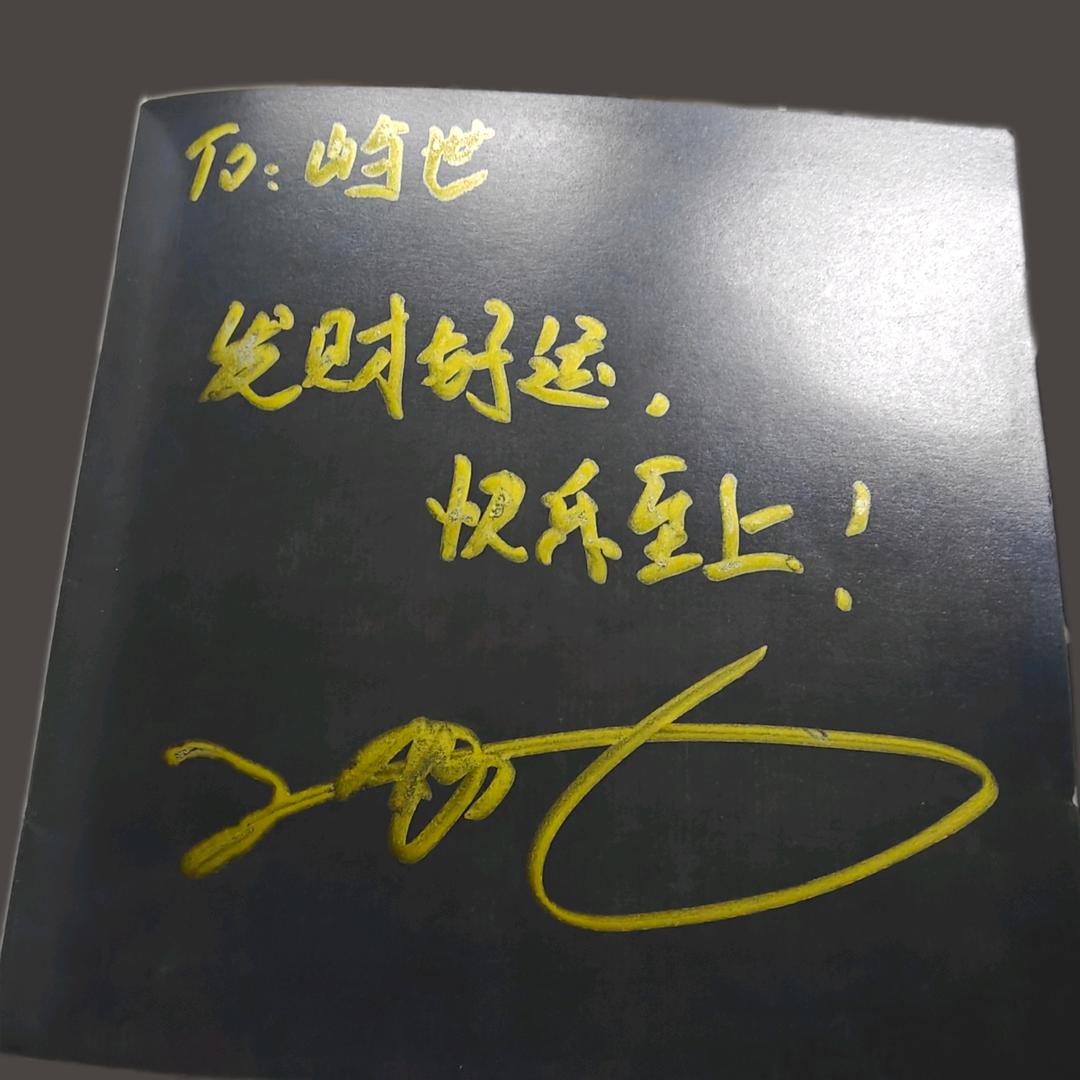 To: 屿世
发财好运，
快乐至上！